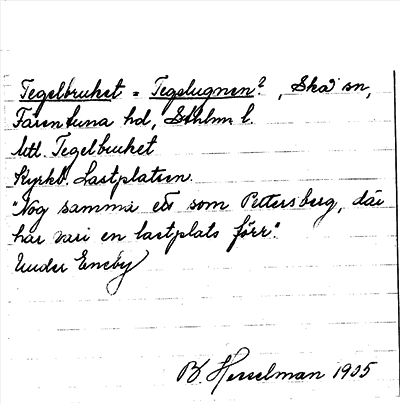 Tegelbruket = Tegelugnen?, Skå sn,
Färentuna hd, Sthlms l.
Uttl. Tegelbruket
Kyrkb. Lastplatsen.
"Nog samma ett som Pettersberg, där
har vari en lastplats förr".
Under Eneby
B. Hesselman 1905